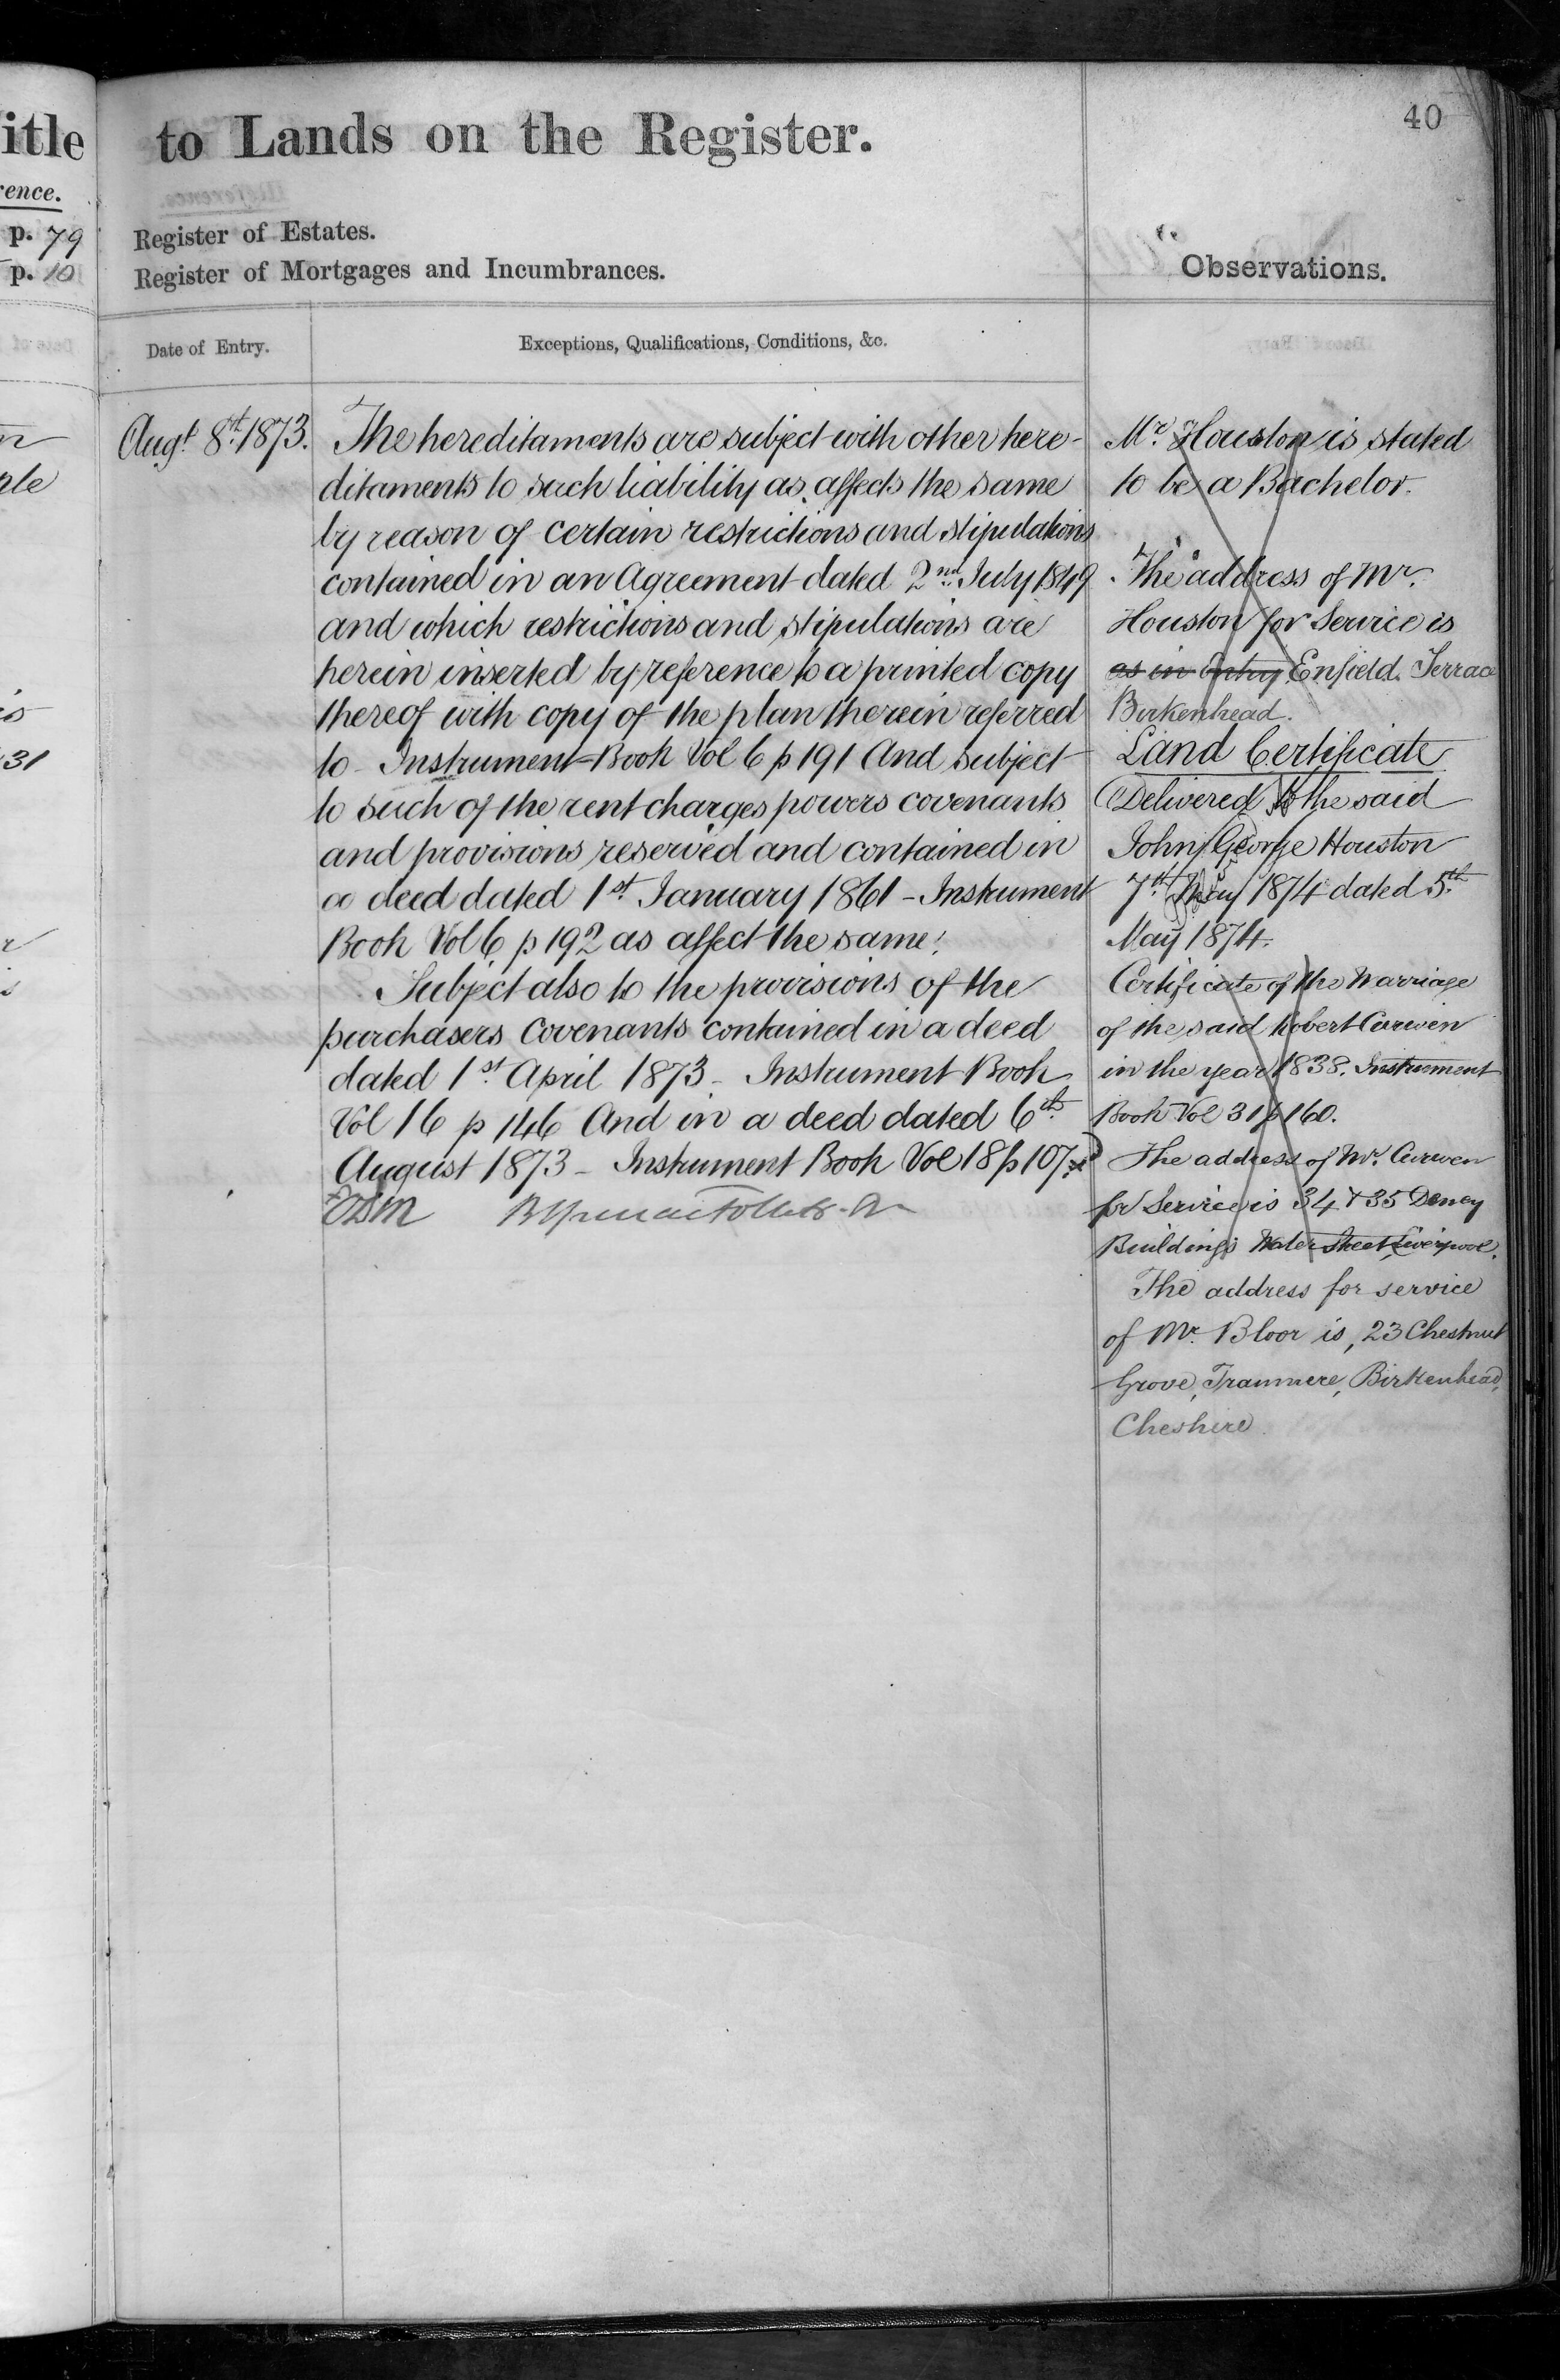 itle
to Lands on the Register.
40
rence.
p. 79
p. 10
Register of Estates.
Register of Mortgages and Incumbrances.
Observations.
Date of Entry.
Exceptions, Qualifications, Conditions, &c.
31
Augt. 8th. 1873.
The hereditaments are subject with other here-
ditaments to such liability as affects the same
by reason of certain restrictions and stipulations
contained in an Agreement dated 2nd. July 1849
and which restrictions and stipulations are
herein inserted by reference to a printed copy
thereof with copy of the plan therein referred
to - Instrument Book Vol 6 p 191 And subject
to such of the rent charges powers covenants
and provisions reserved and contained in
a deed dated 1st. January 1861 - Instrument
Book Vol 6 p 192 as affect the same.
Subject also to the provisions of the
purchasers covenants contained in a deed
dated 1st. April 1873 - Instrument Book
Vol 16 p 146 And in a deed dated 6th.
August 1873 - Instrument Book Vol 18 p 107
Mr. Houston is stated
to be a Bachelor.
The address of Mr.
Houston for Service is
as in Entry Enfield Terrace
Birkenhead.
Land Certificate
Delivered to the said
John George Houston
7th. May 1874 dated 5th.
May 1874.
Certificate of the Marriage
of the said Robert Curwen
in the year 1838. Instrument
Book Vol 31 p 160.
The address of Mr. Curwen
for Service is 34 & 35
Buildings Water Street Liverpool.
The address for service
of Mr. Bloor is, 23 Chestnut
Grove, Tranmere, Birkenhead,
Cheshire.